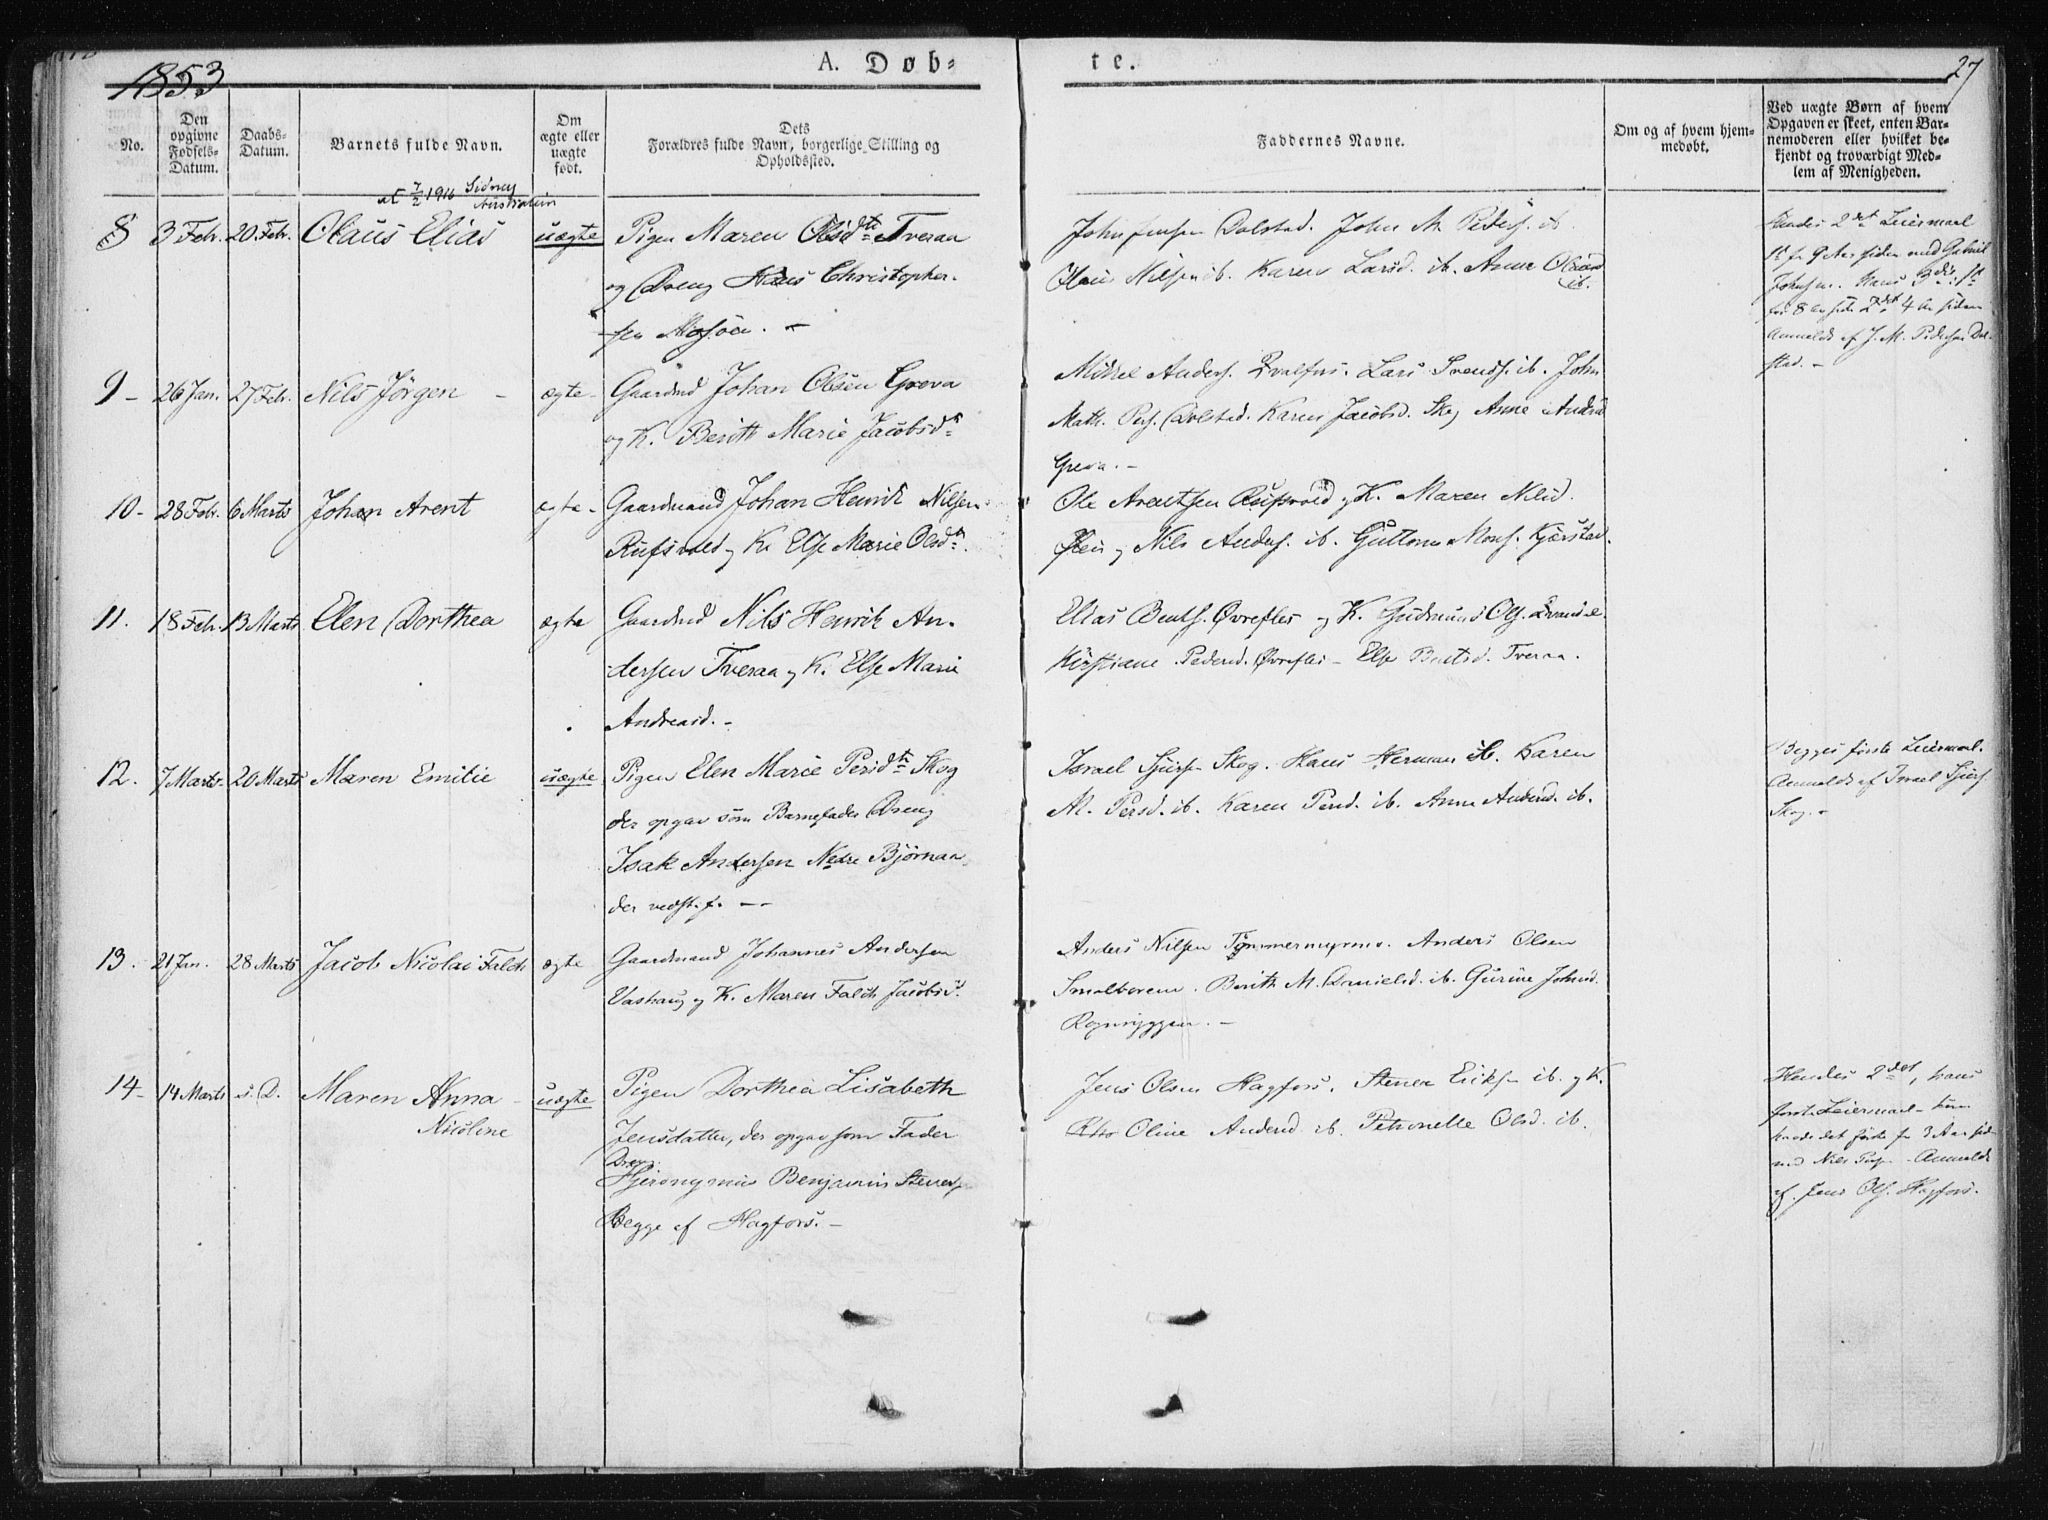 1853
A. Døb-
te.
27
No.
Den opgivne Fødsels-Datum.
Daabs-Datum.
Barnets fulde Navn.
Om ægte eller uægte født.
Dets
Forældres fulde Navn, borgerlige Stilling og
Opholdssted.
Faddernes Navne.
Om og af hvem hjem-
medøbt.
Ved uægte Børn af hvem
Opgaven er skeet, enten Bar-
nemoderen eller hvilket be-
kjendt og troværdigt Med-
lem af Menigheden.
at 7/2 1916 Sidney
Australien
8 3 Feb. 20 Feb. Olaus Elias uægte Pigen Maren Olsdtr Tveraa
og Dreng Hans Christopher-
sen Mosjøen. -
John Jensen Dolstad. John M. Peders. ib
Nilsen ib. Karen Larsd. ib. Anne ib.
Hendes 2det Leiermaal
1ste for 9 Aar siden med Gabriel
Johnsen. Hans 3die: 1ste
for 8 Aar siden 2det 4 Aar siden
Anmeldt af J. M. Pedersen Dol-
stad. -
9 - 26 Jan. 27 Feb. Nils Jörgen - ægte - Gaardmd Johan Olsen Greva
og K. Berith Marie Jacobsdr
Mikkel Anders. Lars Svends. ib. John
Math. Pers. Dolstad. Karen Jacobsd. Skog Anne
Greva. -
10 - 28 Feb. 6 Marts Johan Arent ægte - Gaardmand Johan Henrik Nilsen
Rufsvold og K. Else Marie Olsdtr.
Ole Arentsen Rufsvold og K. Maren Nilsd.
og Nils Anders. ib. Guttorm Mons. Kjærstad.
11. 18 Feb. 13 Marts Elen Dorthea ægte Gaardmd Nils Henrik An-
dersen Tveraa og K. Else Marie
Andreasd. -
Elias Bents. Øvrefles og K. Gudmund Ols.
Kirstiane Pedersd. Øvrefles - Else Bentsd. Tveraa.
12. 7 Marts - 20 Marts Maren Emilie uægte Pigen Elen Marie Persdtr Skog
der opgav som Barnefader Dreng
Isak Andersen Nedre Bjørnaa
der vedst. f. - -
Israel Sjurs. Skog. Hans Herman ib. Karen
M. Persd. ib. Karen Persd. ib. Anne Andersd. ib.
Begges første Leiermaal.
Anmeldt af Israel Sjurs.
Skog. -
13. 21 Jan. 28 Marts Jacob Nicolai Falch ægte Gaardmand Johannes Andersen
Vashaug og K. Maren Falch Jacobsd.
Anders Nilsen Tømmermyrmo. Anders Olsen
Berith M. Danielsd. ib. Gurine Johnsd.
Rognryggen. -
14 - 14 Marts s. D. Maren Anna -
Nicoline
uægte Pigen Dorthea Lisabeth
Jensdatter, der opgav som Fader
Dreng
Hjeronymus Benjamin Steners.
Begge af Hagfors. -
Jens Olsen Hagfors. Stener Eriks. ib. og K.
Oline Andersd. ib. Petronelle Olsd. ib.
Hendes 2det, hans
første Leiermaal - hun
havde det første for 3 Aar siden
med Nils Anmeldt
af Jens Ols. Hagfors.